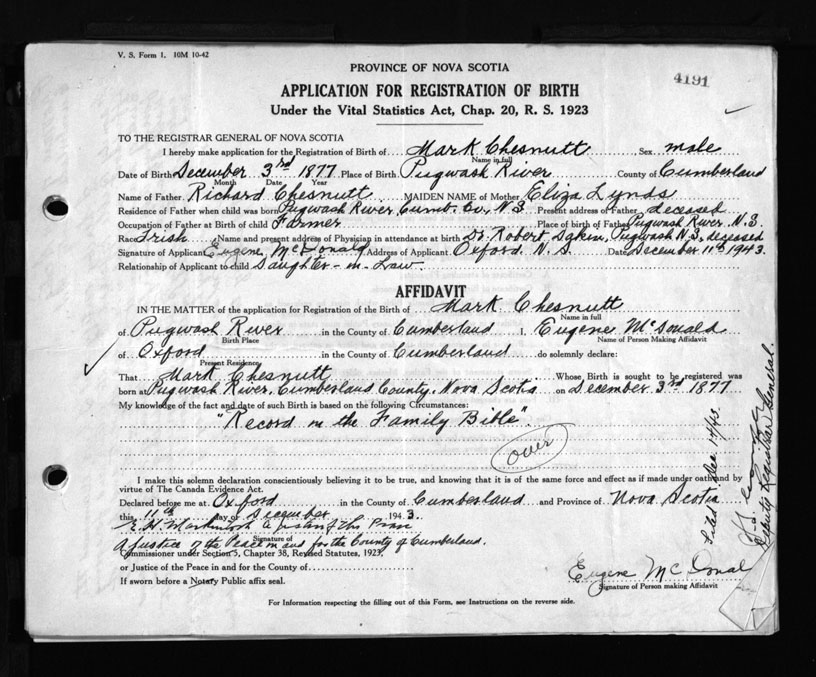 V. S. Form 1. 10M 10-42
PROVINCE OF NOVA SCOTIA
4191
APPLICATION FOR REGISTRATION OF BIRTH
Under the Vital Statistics Act, Chap. 20, R. S. 1923
TO THE REGISTRAR GENERAL OF NOVA SCOTIA
I hereby make application for the Registration of Birth of Mark Chesnutt, Sex male
Name in full
Date of Birth December 3rd 1877 Place of Birth Pugwash River County of Cumberland
Month Date Year
Name of Father Richard Chesnutt MAIDEN NAME of Mother Eliza Lynds
Residence of Father when child was born Pugwash River, Cumb. Co., N.S. Present address of Father, deceased
Occupation of Father at Birth of child Farmer Place of birth of Father Pugwash River N.S.
Race Irish Name and present address of Physician in attendance at birth Dr. Robert Dakin, Pugwash N.S., deceased
Signature of Applicant Eugene McDonald Address of Applicant Oxford N.S. Date December 11th 1943.
Relationship of Applicant to child Daughter-in-Law.
AFFIDAVIT
IN THE MATTER of the application for Registration of the Birth of Mark Chesnutt
Name in full
of Pugwash River in the County of Cumberland I, Eugene McDonald
Birth Place Name of Person Making Affidavit
of Oxford in the County of Cumberland do solemnly declare:
Present Residence
That Mark Chesnutt Whose Birth is sought to be registered was
born at Pugwash River, Cumberland County, Nova Scotia on December 3rd 1877
My knowledge of the fact and date of such Birth is based on the following Circumstances:
"Record in the Family Bible".
over
I make this solemn declaration conscientiously believing it to be true, and knowing that it is of the same force and effect as if made under oath and by
virtue of The Canada Evidence Act.
Declared before me at Oxford in the County of Cumberland and Province of Nova Scotia
this 11th day of December 1943.
Signature of
A Justice of the Peace in and for the County of Cumberland.
Commissioner under Section 5, Chapter 38, Revised Statutes, 1923,
or Justice of the Peace in and for the County of
If sworn before a Notary Public affix seal.
Eugene McDonal
Signature of Person making Affidavit
For Information respecting the filling out of this Form, see Instructions on the reverse side.
Filed Dec 14/43
Deputy Registrar General.